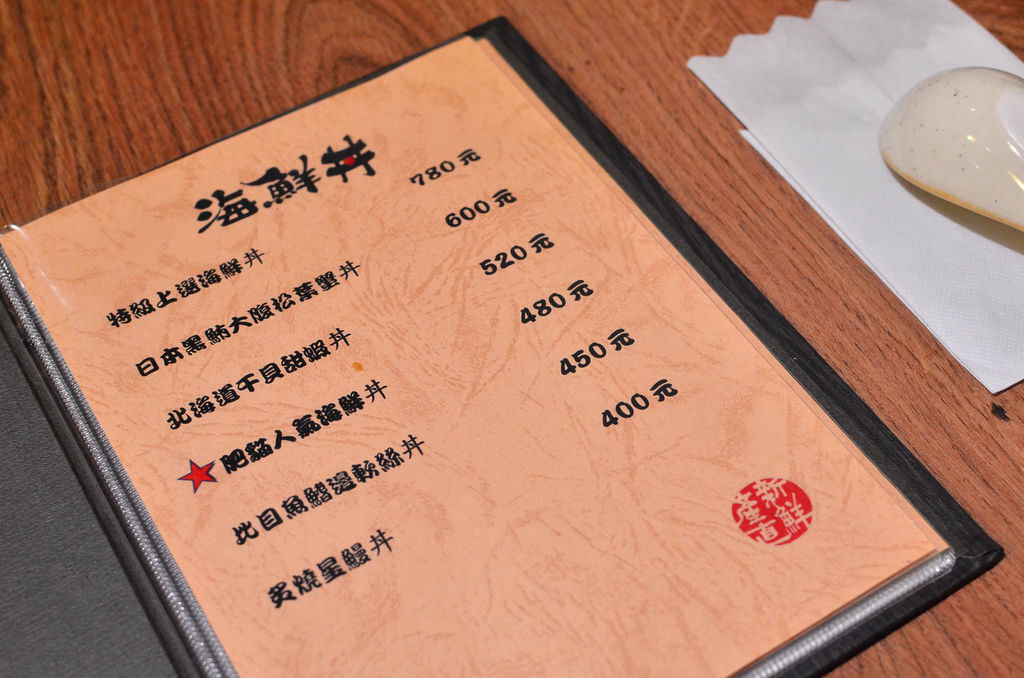 海鮮丼
特級上選海鮮丼 780元
日本黑鮪大腹松葉蟹丼 600元
北海道干貝甜蝦丼 520元
肥貓人氣海鮮丼 480元
比目魚鰭邊軟絲丼 450元
炙燒星鰻丼 400元